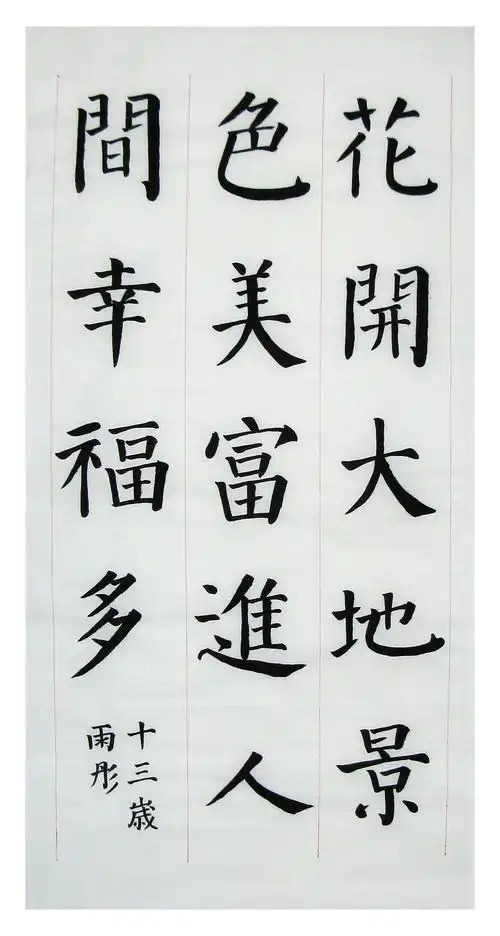 花開大地景
色美富進人
間幸福多
十三歳
雨彤